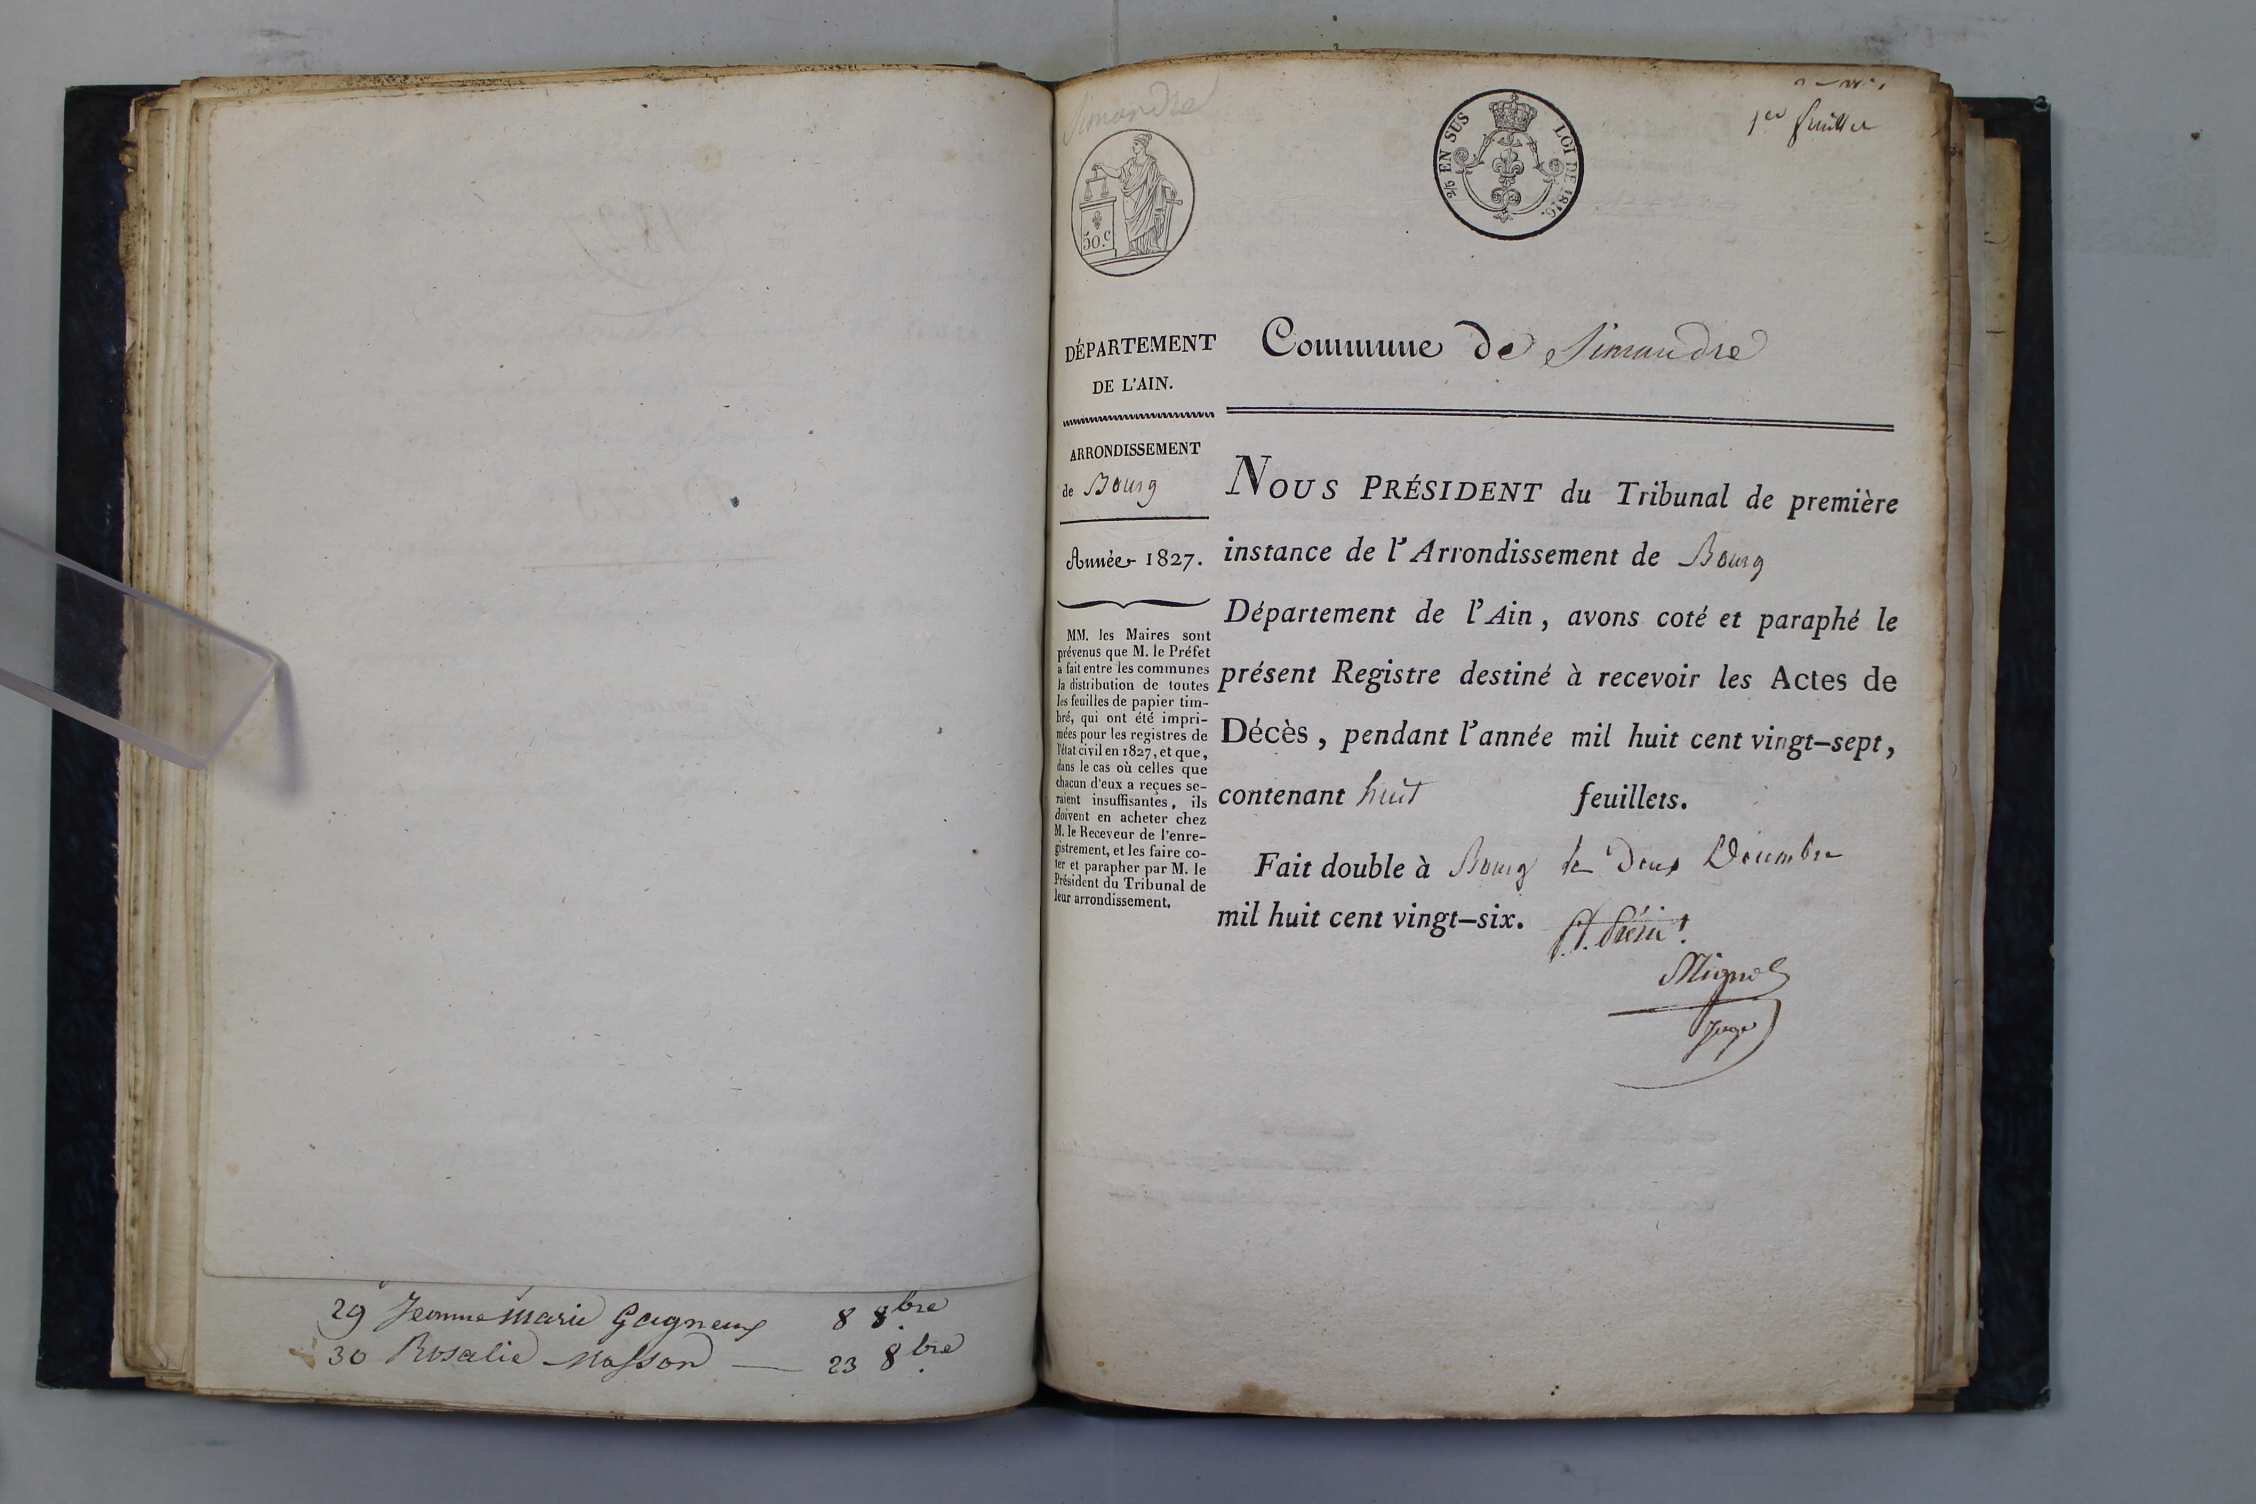 29 Jeanne Marie Gagneux 8 8.bre
30 Rosalie Masson — 23 8.bre
Simandre
50.c
2/5 EN SUS LOI DE 1816.
1er feuillet
DÉPARTEMENT
DE L'AIN.
ARRONDISSEMENT
de Bourg
Année 1827.
MM. les Maires sont
prévenus que M. le Préfet
a fait entre les communes
la distribution de toutes
les feuilles de papier tim-
bré, qui ont été impri-
mées pour les registres de
l'état civil en 1827, et que,
dans le cas où celles que
chacun d'eux a reçues se-
raient insuffisantes, ils
doivent en acheter chez
M. le Receveur de l'enre-
gistrement, et les faire co-
ter et parapher par M. le
Président du Tribunal de
leur arrondissement.
Commune de Simandre
NOUS PRÉSIDENT du Tribunal de première
instance de l'Arrondissement de Bourg
Département de l'Ain, avons coté et paraphé le
présent Registre destiné à recevoir les Actes de
Décès, pendant l'année mil huit cent vingt-sept,
contenant huit feuillets.
Fait double à Bourg le Deux Décembre
mil huit cent vingt-six.
Juge